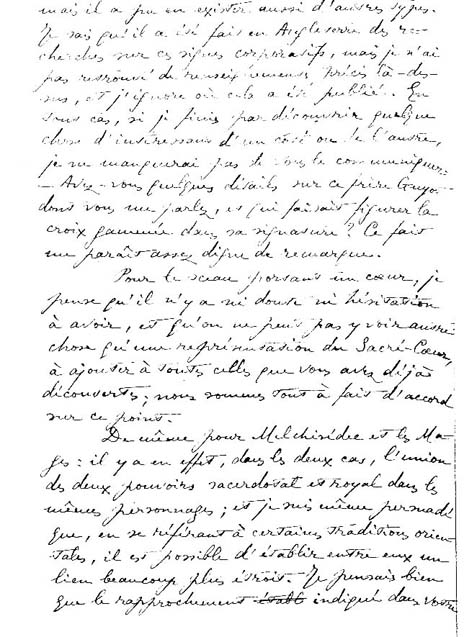 mais il a pu en exister aussi d'autres types.
Je sais qu'il a été fait en Angleterre des re-
cherches sur ces signes corporatifs, mais je n'ai
pas retrouvé de renseignements précis là-des-
sus, et j'ignore où cela a été publié. En
tous cas, si je finis par découvrir quelque
chose d'intéressant d'un côté ou de l'autre,
je ne manquerai pas de vous le communiquer.
— Avez-vous quelques détails sur ce frère Guyot
dont vous me parlez, et qui faisait figurer la
croix gammée dans sa signature ? Ce fait
me paraît assez digne de remarque.
Pour le sceau portant un cœur, je
pense qu'il n'y a ni doute ni hésitation
à avoir, et qu'on ne peut pas y voir autre
chose qu'une représentation du Sacré-Cœur,
à ajouter à toutes celles que vous avez déjà
découvertes ; nous sommes tout à fait d'accord
sur ce point.
De même pour Melchisédec et les Ma-
ges : il y a en effet, dans les deux cas, l'union
des deux pouvoirs sacerdotal et royal dans les
mêmes personnages ; et je suis même persuadé
que, en se référant à certaines traditions orien-
tales, il est possible d'établir entre eux un
lien beaucoup plus étroit. Je pensais bien
que le rapprochement établi indiqué dans votre